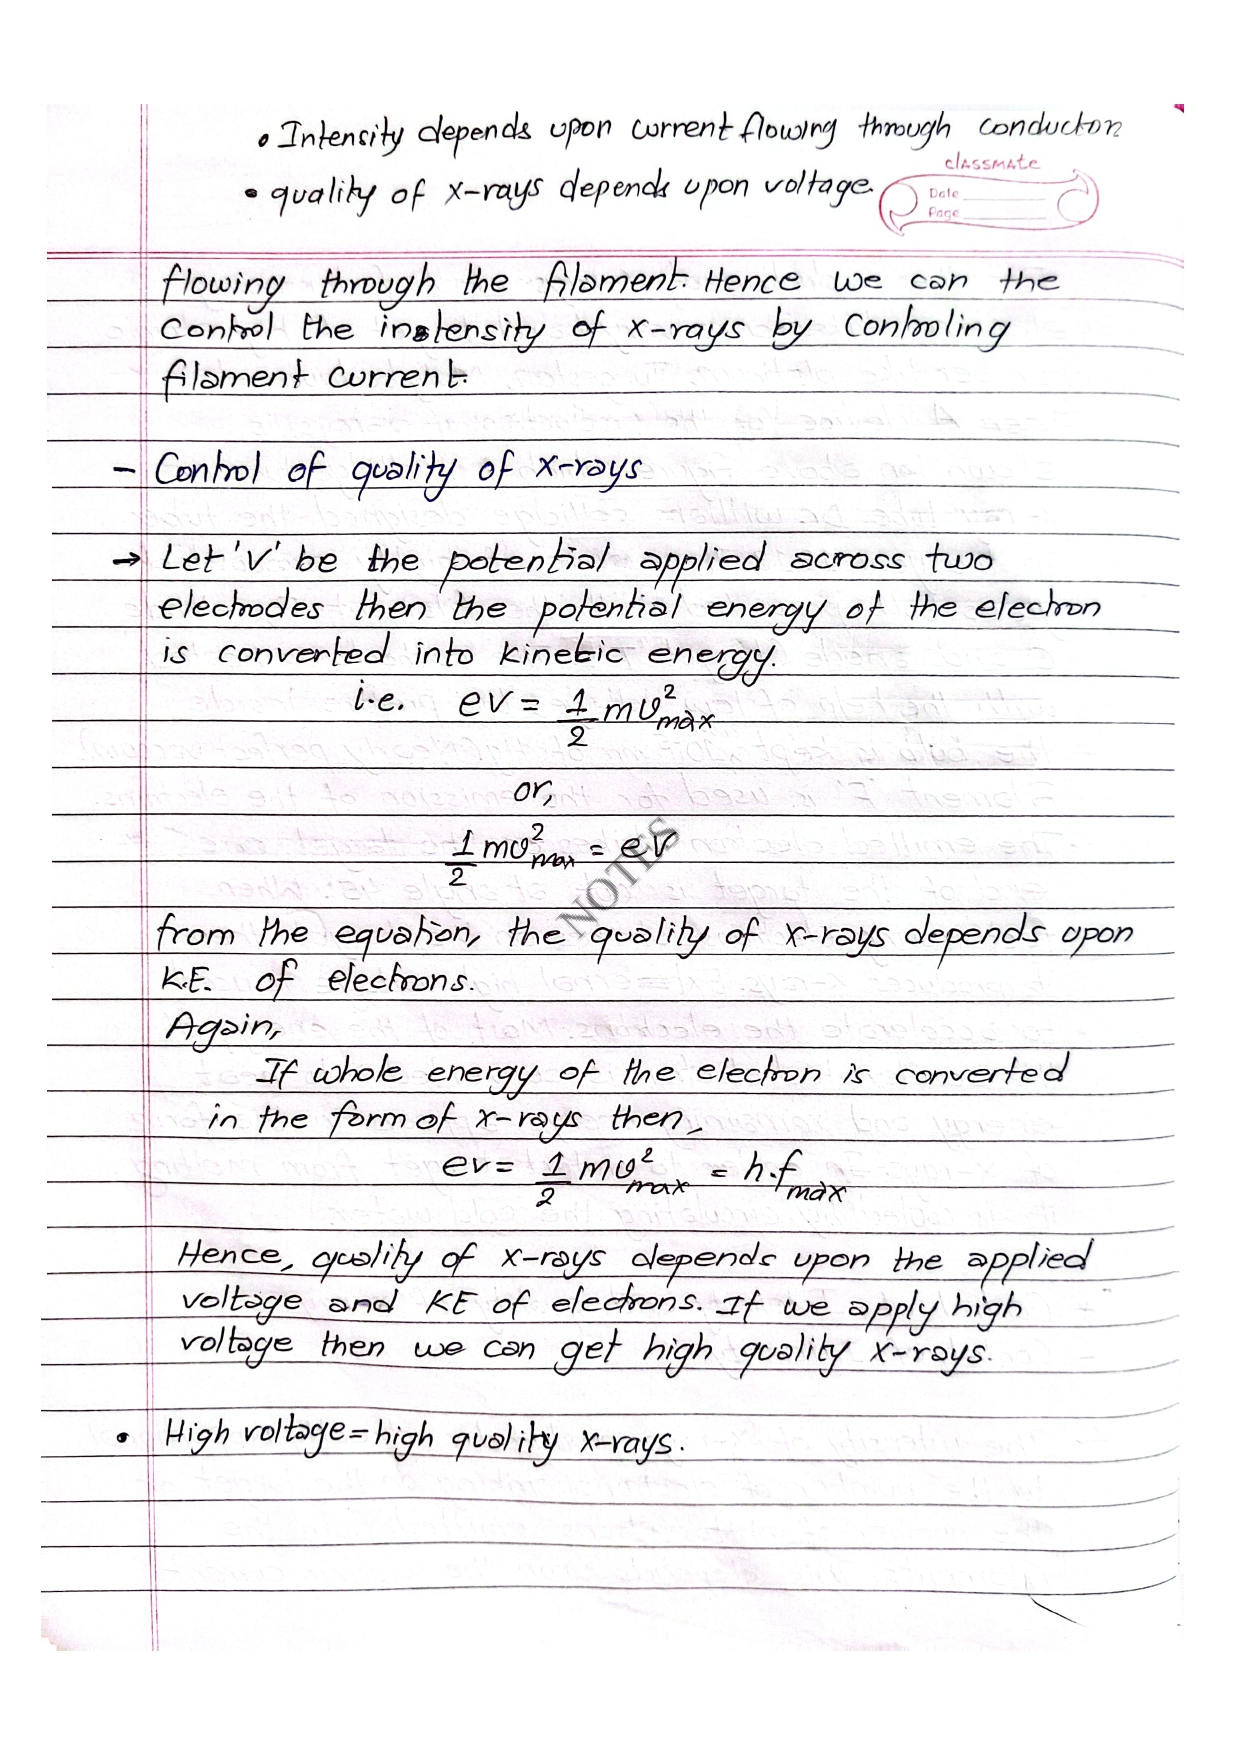 • Intensity depends upon current flowing through conductor
• quality of x-rays depends upon voltage.
classmate
Date
Page
flowing through the filament. Hence we can the
control the intensity of x-rays by controling
filament current.
- Control of quality of x-rays
→ Let 'V' be the potential applied across two
electrodes then the potential energy of the electron
is converted into kinetic energy.
i.e. eV = 1/2 mv²max
or,
1/2 mv²max = eV
NOTES
from the equation, the quality of x-rays depends upon
K.E. of electrons.
Again,
If whole energy of the electron is converted
in the form of x-rays then,
ev = 1/2 mv²max = h.fmax
Hence, quality of x-rays depends upon the applied
voltage and KE of electrons. If we apply high
voltage then we can get high quality x-rays.
• High voltage = high quality x-rays.